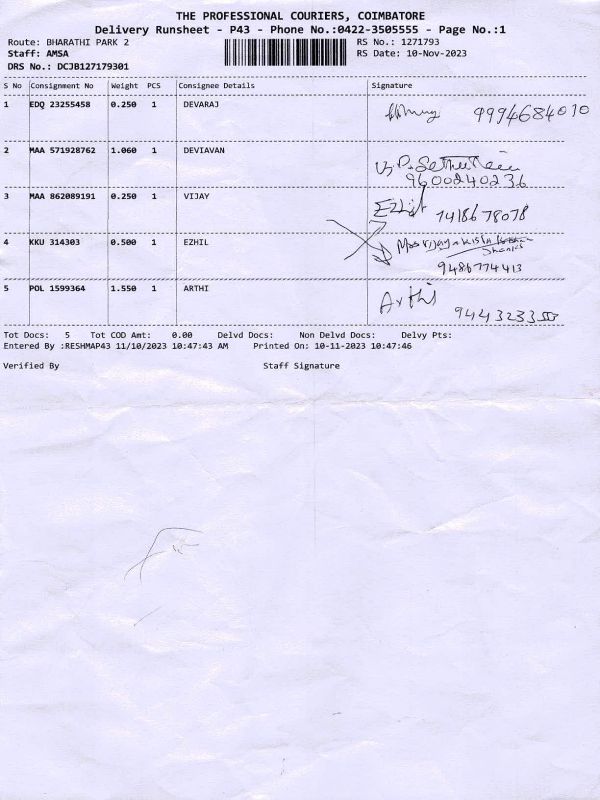 THE PROFESSIONAL COURIERS, COIMBATORE
Delivery Runsheet - P43 - Phone No.:0422-3505555 - Page No.:1
Route: BHARATHI PARK 2 RS No.: 1271793
Staff: AMSA RS Date: 10-Nov-2023
DRS No.: DCJB127179301
S No Consignment No Weight PCS Consignee Details Signature
1 EDQ 23255458 0.250 1 DEVARAJ 9994684010
2 MAA 571928762 1.060 1 DEVIAVAN
9600240236
3 MAA 862089191 0.250 1 VIJAY Ezhil 7418678078
4 KKU 314303 0.500 1 EZHIL
9486774413
5 POL 1599364 1.550 1 ARTHI Arthi
Tot Docs: 5 Tot COD Amt: 0.00 Delvd Docs: Non Delvd Docs: Delvy Pts:
Entered By :RESHMAP43 11/10/2023 10:47:43 AM Printed On: 10-11-2023 10:47:46
Verified By Staff Signature